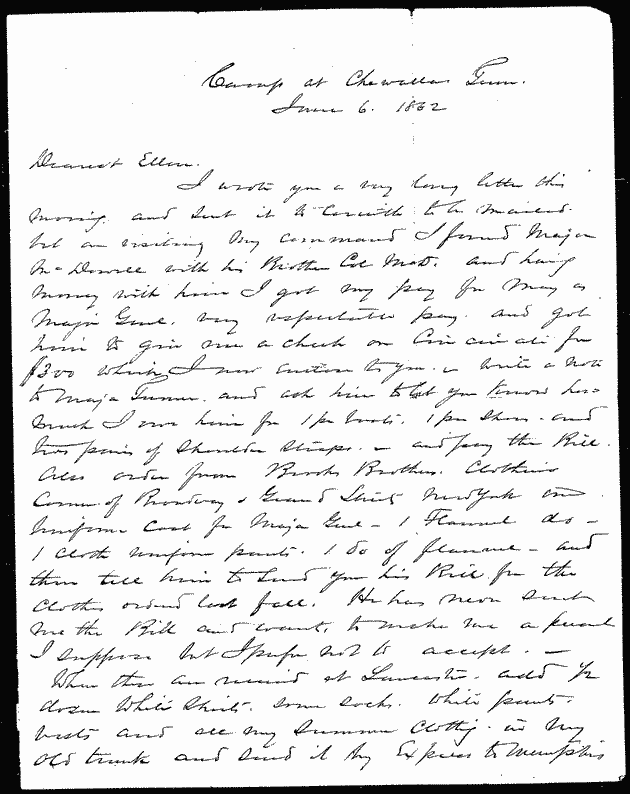 Camp at Chewalla Tenn.
June 6. 1862
Dearest Ellen.
I wrote you a very long letter this
morning. and sent it to Corinth to be mailed.
but on visiting my command I found Major
McDowell with his Brother Col McD. and having
money with him I got my pay for May as
Major Genl. very respectable pay. and got
him to give me a check on Cincinnati for
$300 which I now enclose to you. — Write a note
to Major Turner. and ask him to let you know how
much I owe him for 1 pr boots. 1 pr shoes. and
two pairs of shoulder straps. — and pay the Bill.
Also order from Brooks Brothers. Clothiers
Corner of Broadway & Grand Streets New York one
uniform coat for Major Genl — 1 Flannel do —
1 cloth uniform pants. 1 do of flannel — and
then tell him to send you his Bill for the
clothes ordered last fall. He has never sent
me the Bill and wants, to make me a present
I suppose but I prefer not to accept. —
When these are received at Lancaster. add ½
dozen White Shirts. some socks. white pants.
vests and all my summer clothing. in my
old trunk and send it by Express to Memphis